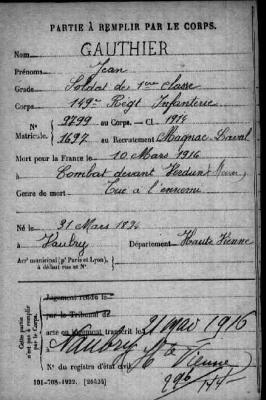 PARTIE À REMPLIR PAR LE CORPS.
Nom GAUTHIER
Prénoms Jean
Grade Soldat de 1ère classe
Corps 149e Régt Infanterie
N° 9799 au Corps. — Cl. 1914
Matricule. 1697 au Recrutement Magnac Laval
Mort pour la France le 10 Mars 1916
à Combat devant Verdun (Meuse)
Genre de mort Tué à l'ennemi
Né le 31 Mars 1894
à Vaulry Département Haute Vienne
Arrt municipal (pr Paris et Lyon), à défaut rue et N°
Cette partie n'est pas à remplir par le Corps.
Jugement rendu le
par le Tribunal de
acte ou jugement transcrit le 21 mai 1916
à Vaulry Hte Vienne
N° du registre d'état civil
101-708-1922. [26434]